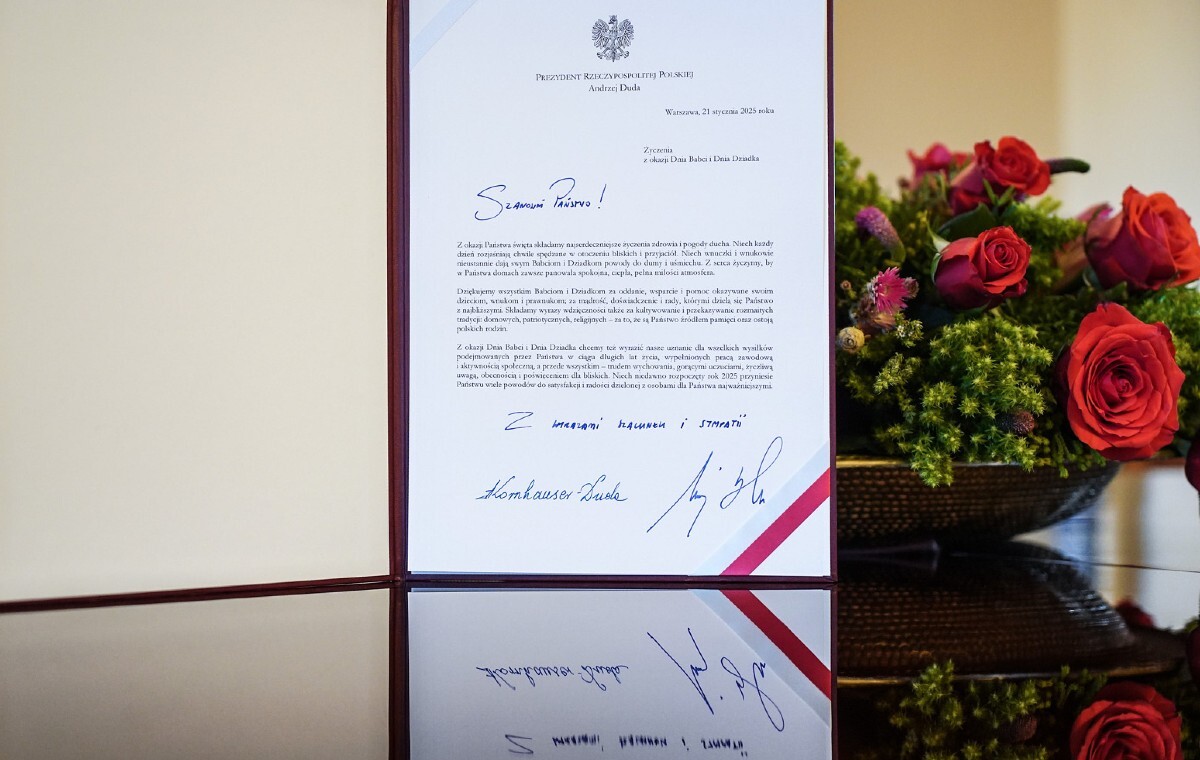 PREZYDENT RZECZYPOSPOLITEJ POLSKIEJ
Andrzej Duda
Warszawa, 21 stycznia 2025 roku
Życzenia
z okazji Dnia Babci i Dnia Dziadka
SZANOWNI PAŃSTWO!
Z okazji Państwa święta składamy najserdeczniejsze życzenia zdrowia i pogody ducha. Niech każdy
dzień rozjaśniają chwile spędzane w otoczeniu bliskich i przyjaciół. Niech wnuczki i wnukowie
nieustannie dają swym Babciom i Dziadkom powody do dumy i uśmiechu. Z serca życzymy, by
w Państwa domach zawsze panowała spokojna, ciepła, pełna miłości atmosfera.
Dziękujemy wszystkim Babciom i Dziadkom za oddanie, wsparcie i pomoc okazywane swoim
dzieciom, wnukom i prawnukom; za mądrość, doświadczenie i rady, którymi dzielą się Państwo
z najbliższymi. Składamy wyrazy wdzięczności także za kultywowanie i przekazywanie rozmaitych
tradycji: domowych, patriotycznych, religijnych – za to, że są Państwo źródłem pamięci oraz ostoją
polskich rodzin.
Z okazji Dnia Babci i Dnia Dziadka chcemy też wyrazić nasze uznanie dla wszelkich wysiłków
podejmowanych przez Państwa w ciągu długich lat życia, wypełnionych pracą zawodową
i aktywnością społeczną, a przede wszystkim – trudem wychowania, gorącymi uczuciami, życzliwą
uwagą, obecnością i poświęceniem dla bliskich. Niech niedawno rozpoczęty rok 2025 przyniesie
Państwu wiele powodów do satysfakcji i radości dzielonej z osobami dla Państwa najważniejszymi.
Z WYRAZAMI SZACUNKU I SYMPATII
Kornhauser-Duda